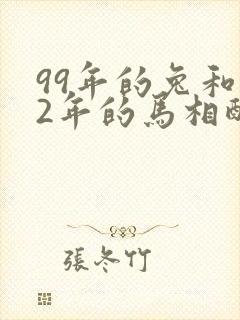 99年的兔和
2年的馬相配
張冬竹